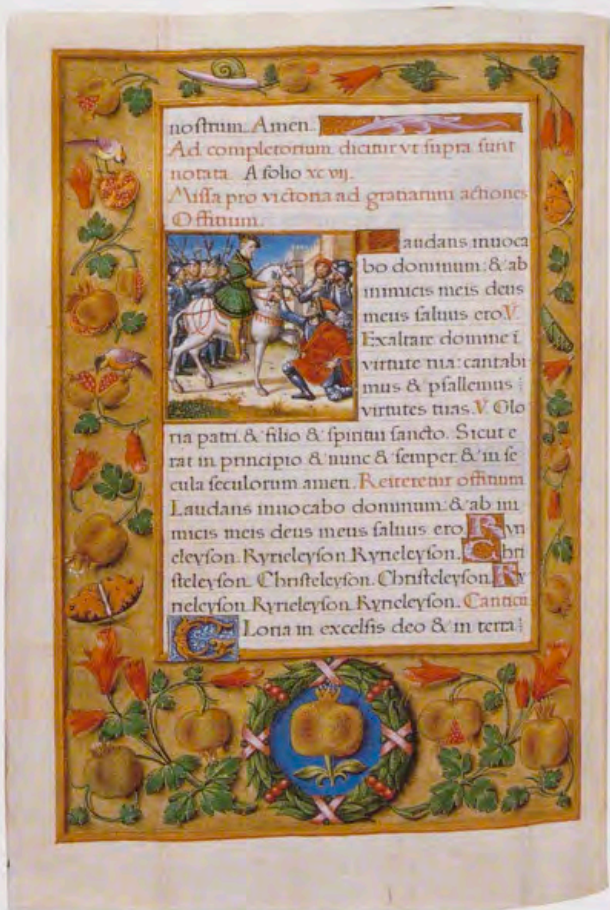 nostrum. Amen.
Ad completorium dicitur vt supra sunt
notata. A folio xc vij.
Missa pro victoria ad gratiarum actiones
Offitium.
Laudans inuoca
bo dominum: & ab
inimicis meis deus
meus saluus ero. V.
Exaltare domine ī
virtute tua: cantabi
mus & psallemus
virtutes tuas. V. Glo
ria patri. & filio & spiritui sancto. Sicut e
rat in principio & nunc & semper & in se
cula seculorum amen. Reiteretur offitium
Laudans inuocabo dominum: & ab ini
micis meis deus meus saluus ero. Kyri
eleyson. Kyrieleyson Kyrieleyson. Chri
steleyson. Christeleyson. Christeleyson. Ky
rieleyson. Kyrieleyson. Kyrieleyson. Canticū
Gloria in excelsis deo & in terra